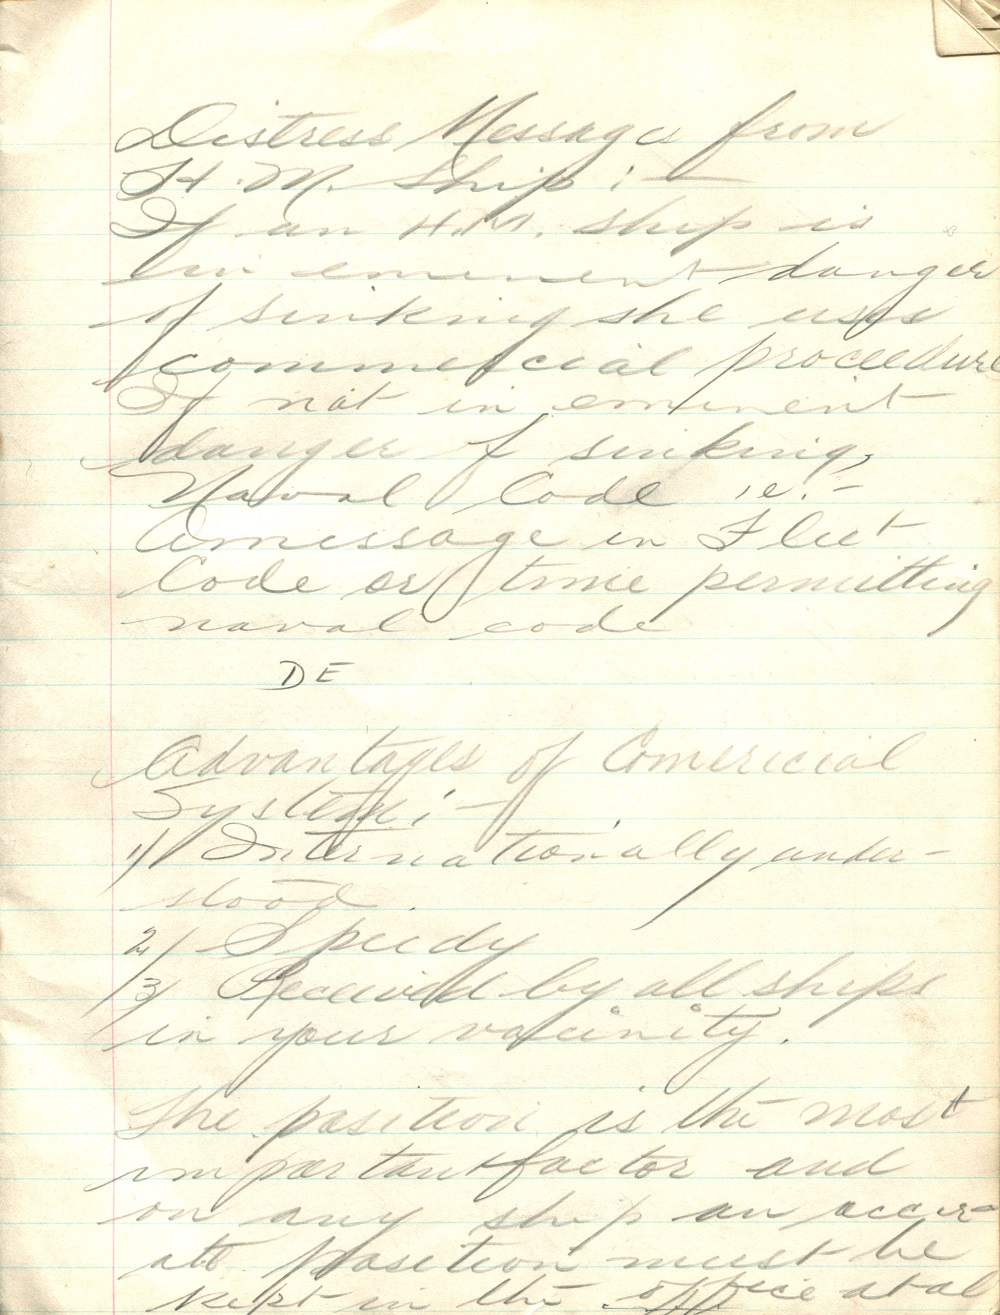 Distress Messages from
H.M. Ship :-
If an H.M. ship is
in eminent danger
of sinking she uses
commercial proceedure
If not in eminent
danger of sinking,
Naval Code i.e. -
A message in Fleet
Code or time permitting
naval code
DE
Advantages of Comericial
System :-
1/ Internationally under-
stood.
2/ Speedy
3/ Received by all ships
in your vacinity.
The position is the most
important factor and
on any ship an accur-
ate position must be
kept in the office at al